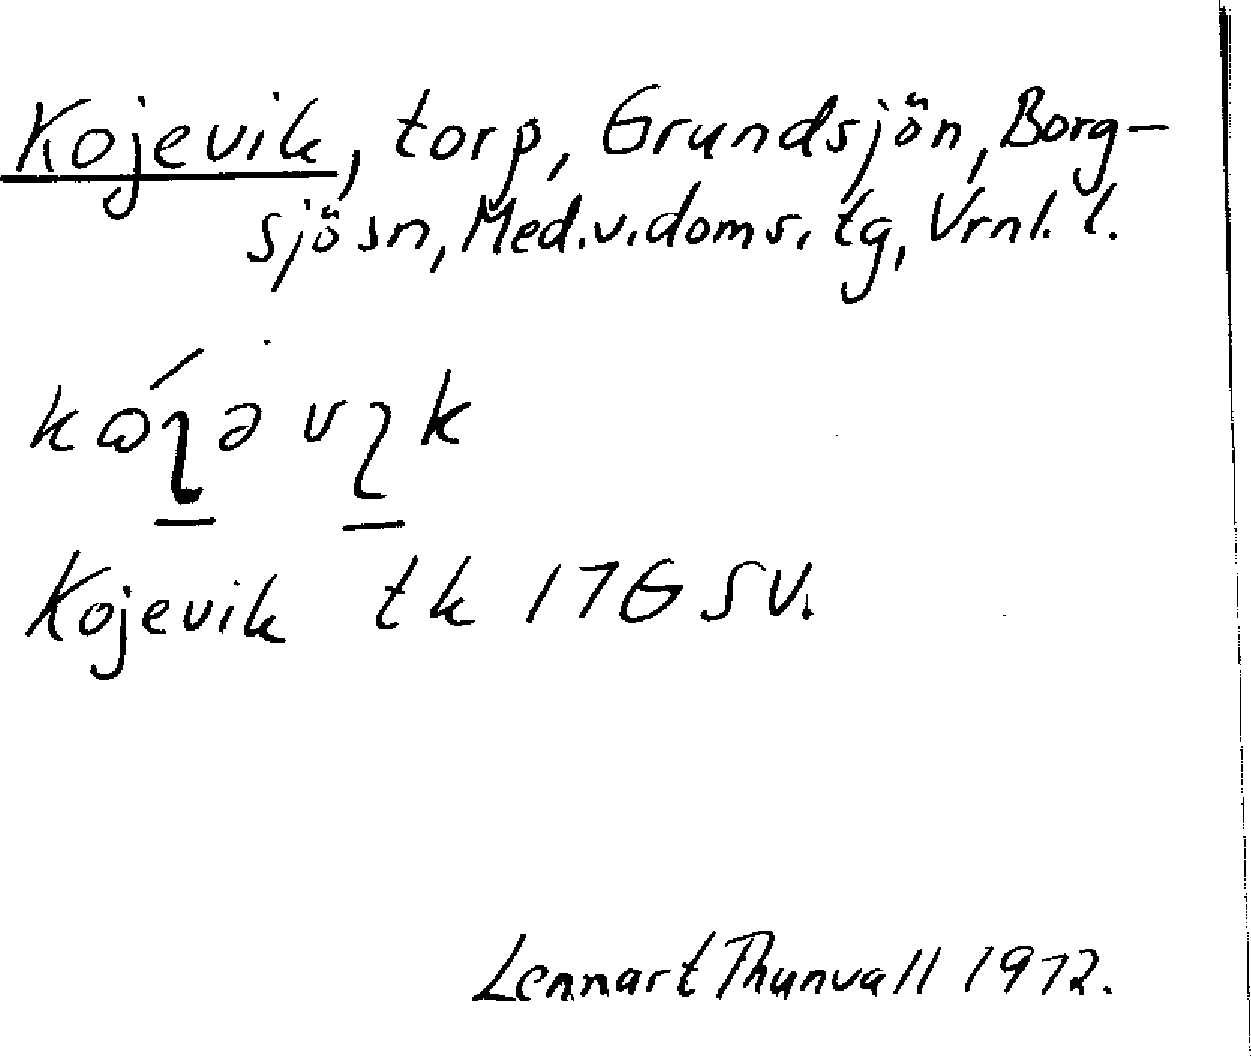 Kojevik, torp, Grundsjön, Borg-
sjösn, Med.v.doms.tg, Vrnl. l.
Kojevik tk 17G SV.
Lennart Thunvall 1972.